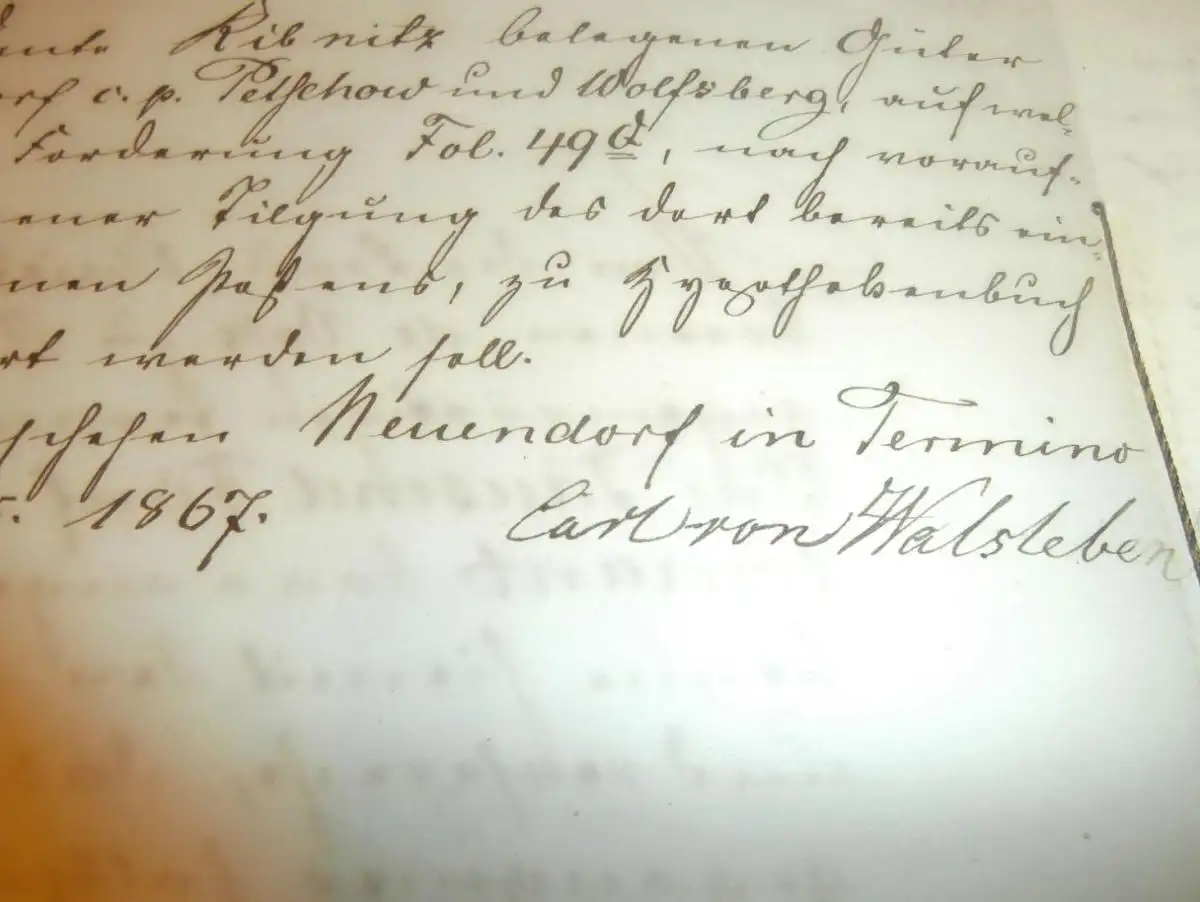 Amte Ribnitz belegenen Güter
orf c. p. Petschow und Wolfsberg, auf wel-
Forderung Fol. 49 d, nach vorauf-
ener Tilgung des dort bereits ein-
nen Postens, zu Hypothekenbuch
rt werden soll.
schehen Neuendorf in Termino
1867. Carl von Walsleben